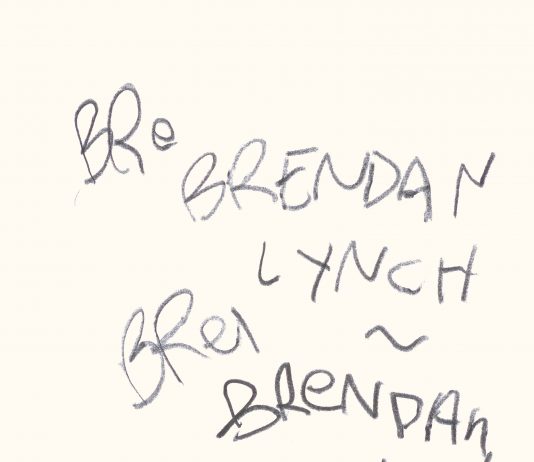 BRe
BRENDAN
LYNCH
BRen
~
BReNDAn